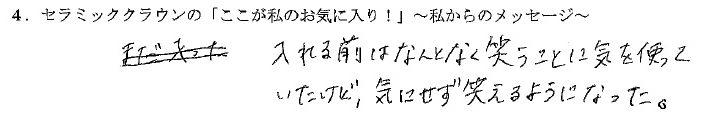 4. セラミッククラウンの「ここが私のお気に入り！」～私からのメッセージ～
入れる前はなんとなく笑うことに気を使って
いたけど、気にせず笑えるようになった。